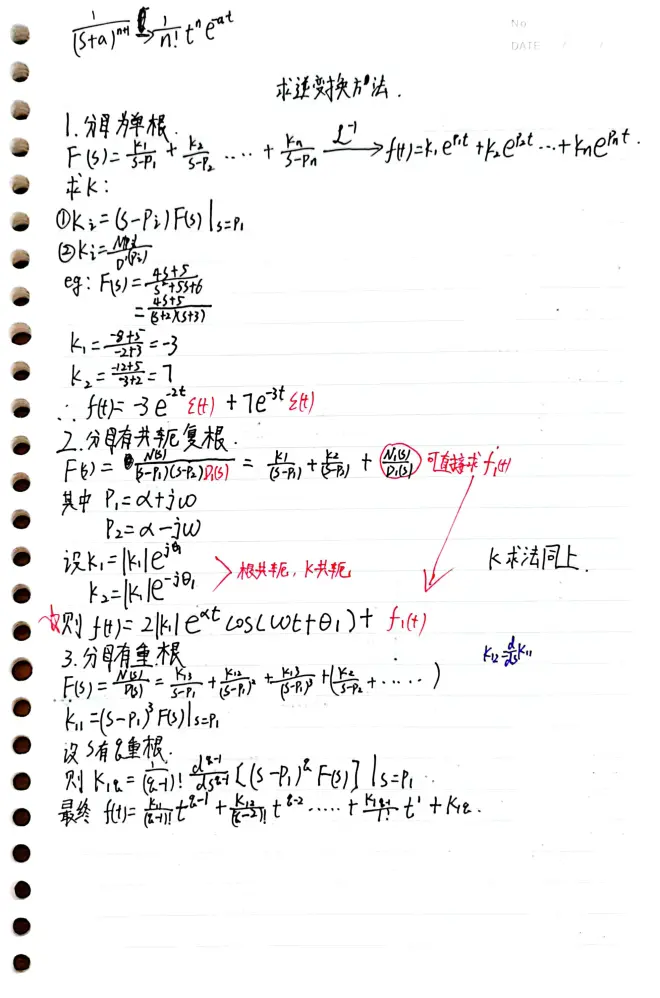 1/(s+a)^{n+1} → 1/n! t^n e^{-at}
No
DATE / /
求逆变换方法.
1.分母为单根.
F(s)=K1/(s-P1)+K2/(s-P2)....+Kn/(s-Pn) —ℒ^{-1}→ f(t)=K1e^{P1t}+K2e^{P2t}...+Kne^{Pnt}.
求K:
①Ki=(s-Pi)F(s)|s=P1
②Ki=N(Pi)/D'(Pi)
eg: F(s)=(4s+5)/(s²+5s+6)
=(4s+5)/((s+2)(s+3))
K1=(-8+5)/(-2+3)=-3
K2=(-12+5)/(-3+2)=7
∴ f(t)=-3e^{-2t}ε(t)+7e^{-3t}ε(t)
2.分母有共轭复根.
F(s)=N(s)/((s-P1)(s-P2)D1(s))=K1/(s-P1)+K2/(s-P2)+N1(s)/D1(s) 可直接求f1(t)
其中 P1=α+jω
P2=α-jω
设K1=|K1|e^{jθ1}
K2=|K1|e^{-jθ1}
根共轭,K共轭
K求法同上.
则 f(t)=2|K1|e^{αt}cos(ωt+θ1)+f1(t)
3.分母有重根
K12=d/ds K11
F(s)=N(s)/D(s)=K13/(s-P1)+K12/(s-P1)²+K13/(s-P1)³+(K2/(s-P2)+......)
K11=(s-P1)³F(s)|s=P1
设s有q重根.
则K1q=1/(q-1)! d^{q-1}/ds^{q-1}[(s-P1)^q F(s)]|s=P1.
最终 f(t)=K11/(q-1)! t^{q-1}+K12/(q-2)! t^{q-2}.....+K1q-1/1! t^1+K1q.